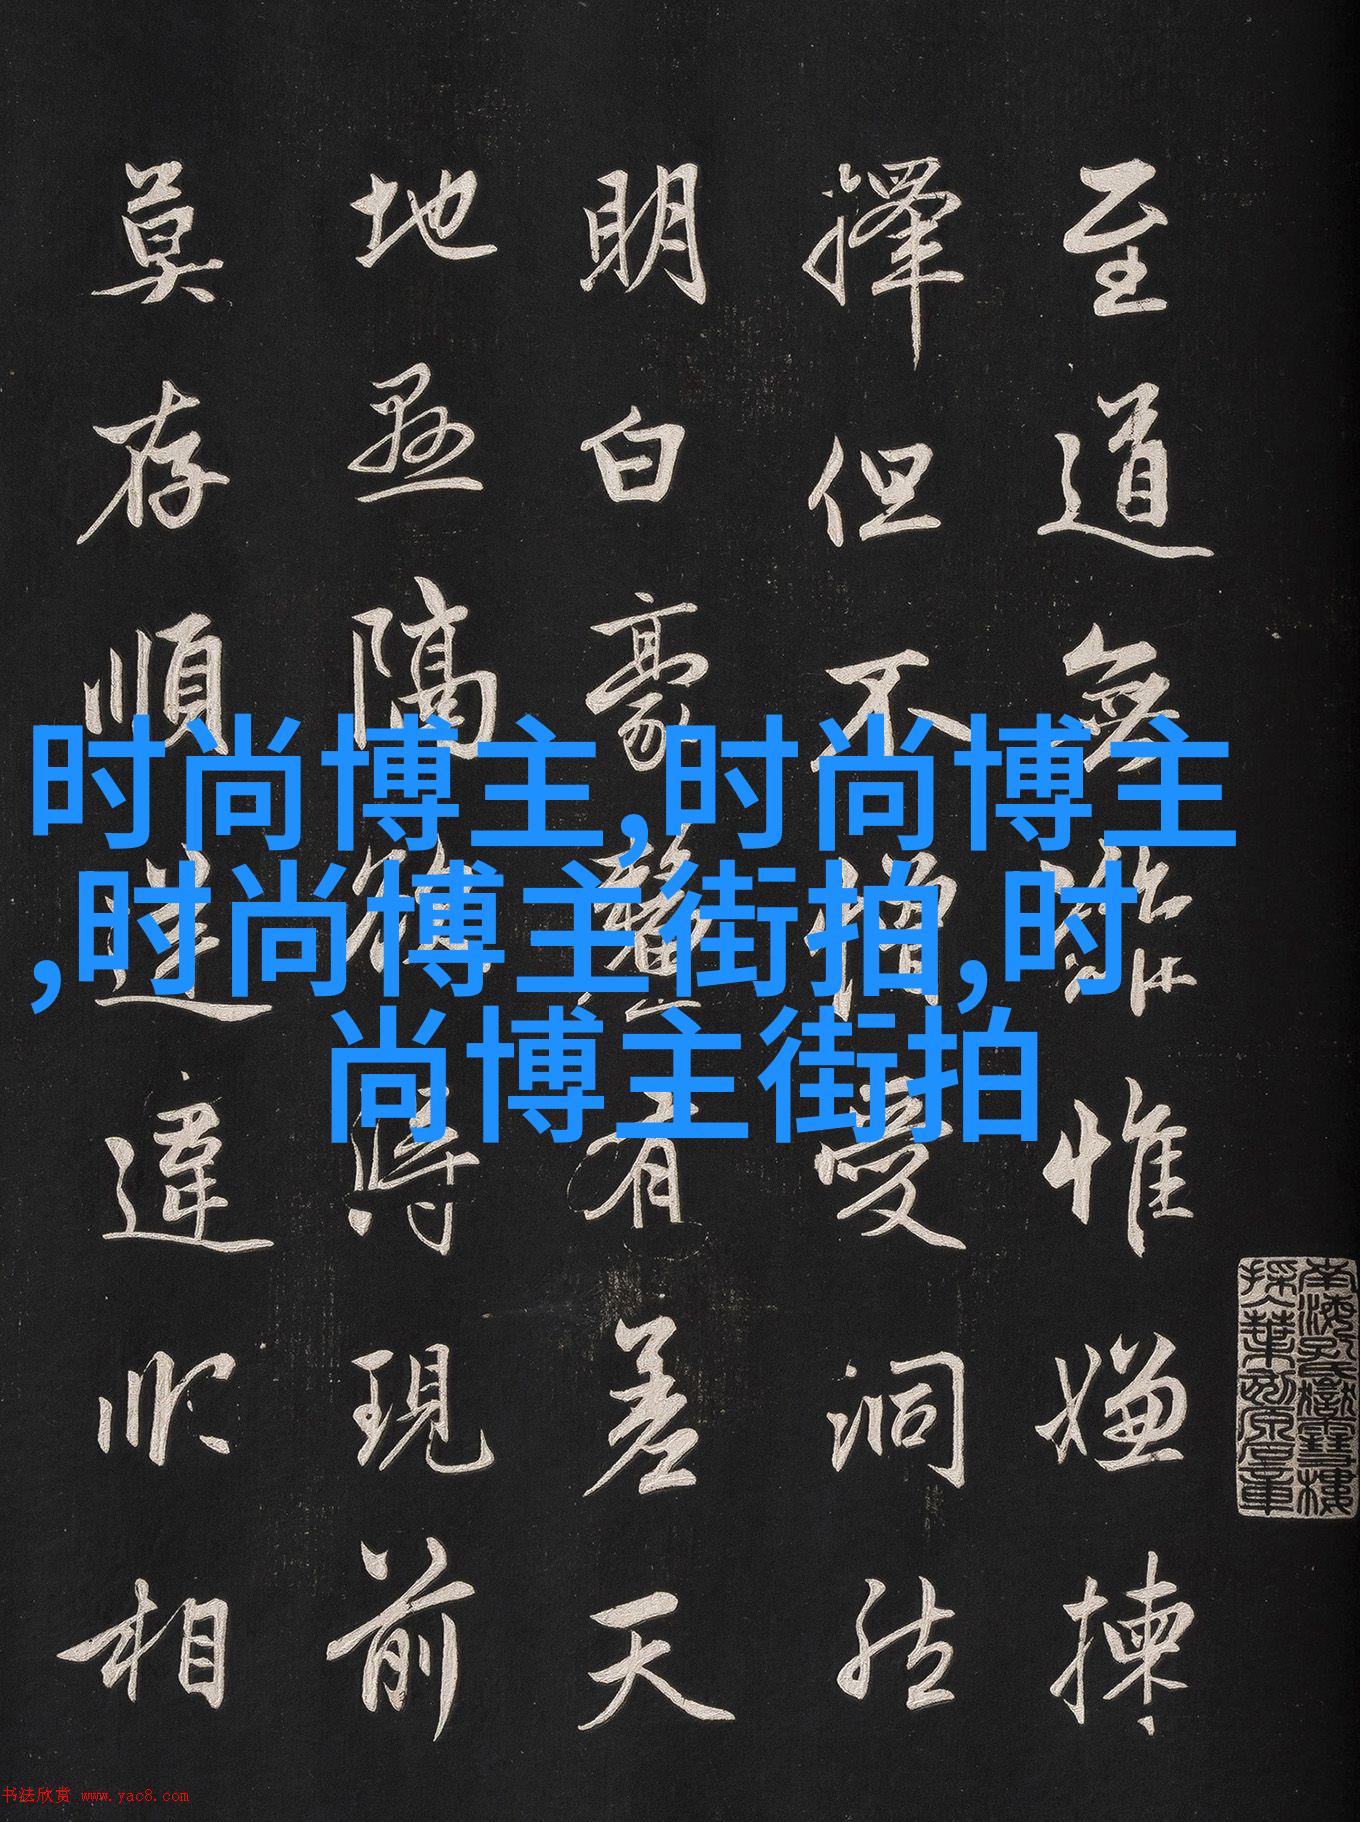 至道無難惟嫌揀
擇但不憎愛洞然
明白豪釐有差天
地懸隔欲得現前
莫存順逆違順相
时尚博主,时尚博主
,时尚博主街拍,时
尚博主街拍
书法欣赏 www.yac8.com